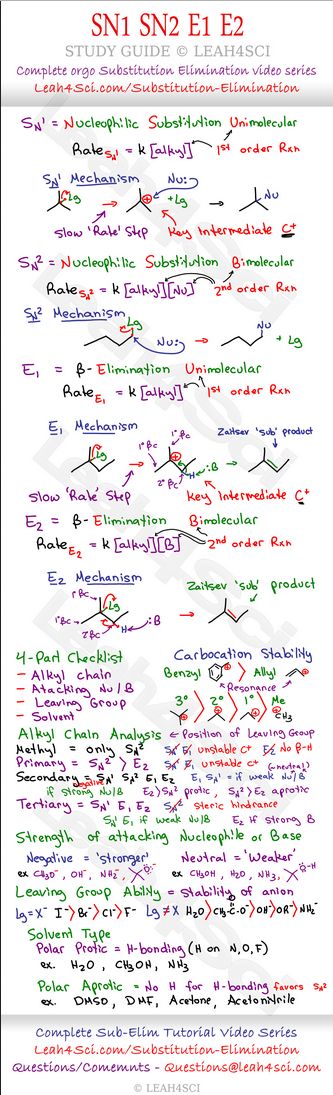 SN1 SN2 E1 E2
STUDY GUIDE © LEAH4SCI
Complete orgo Substitution Elimination video series
Leah4Sci.com/Substitution-Elimination
SN1 = Nucleophilic Substitution Unimolecular
RateSN1 = k [alkyl] 1st order Rxn
SN1 Mechanism Nu:
Lg + Lg Nu
Slow 'Rate' Step Key Intermediate C+
SN2 = Nucleophilic Substitution Bimolecular
RateSN2 = k [alkyl][Nu] 2nd order Rxn
SN2 Mechanism
Lg Nu: Nu + Lg
E1 = β-Elimination Unimolecular
RateE1 = k [alkyl] 1st order Rxn
E1 Mechanism 1° βc Zaitsev 'sub' product
Lg 1° βc 2° βc H :B
Slow 'Rate' Step Key Intermediate C+
E2 = β-Elimination Bimolecular
RateE2 = k [alkyl][B] 2nd order Rxn
E2 Mechanism Zaitsev 'sub' product
1° βc Lg 1° βc 2° βc H :B
4-Part Checklist Carbocation Stability
- Alkyl chain Benzyl Allyl
- Atacking Nu/B Resonance
- Leaving Group 3° > 2° > 1° > Me
- Solvent CH3
Alkyl Chain Analysis Position of Leaving Group
Methyl = only SN2 SN1 E1 unstable C+ E2 No β-H
Primary = SN2 > E2 SN1 E1 unstable C+ (neutral)
Secondary = SN1 SN2 E1 E2 E1, SN1 = if weak Nu/B
if strong negative Nu/B E2 > SN2 protic, SN2 > E2 aprotic
Tertiary = SN1 E1, E2 SN2 steric hindrance
SN1 E1 if weak Nu/B E2 if strong B
Strength of attacking Nucleophile or Base
Negative = 'Stronger' Neutral = 'Weaker'
ex CH3O-, OH-, NH2-, O- ex CH3OH, H2O, NH3, O-H
Leaving Group Ability = Stability of anion
Lg = X- I- > Br- > Cl- > F- Lg ≠ X H2O > CH3-C-O- > OH- > OR- > NH2-
Solvent Type
Polar Protic = H-bonding (H on N,O,F)
ex. H2O, CH3OH, NH3
Polar Aprotic = No H for H-bonding favors SN2
ex. DMSO, DMF, Acetone, Acetonitrile
Complete Sub-Elim Tutorial Video Series
Leah4Sci.com/Substitution-Elimination
Questions/Comemnts - Questions@leah4sci.com
© LEAH4SCI